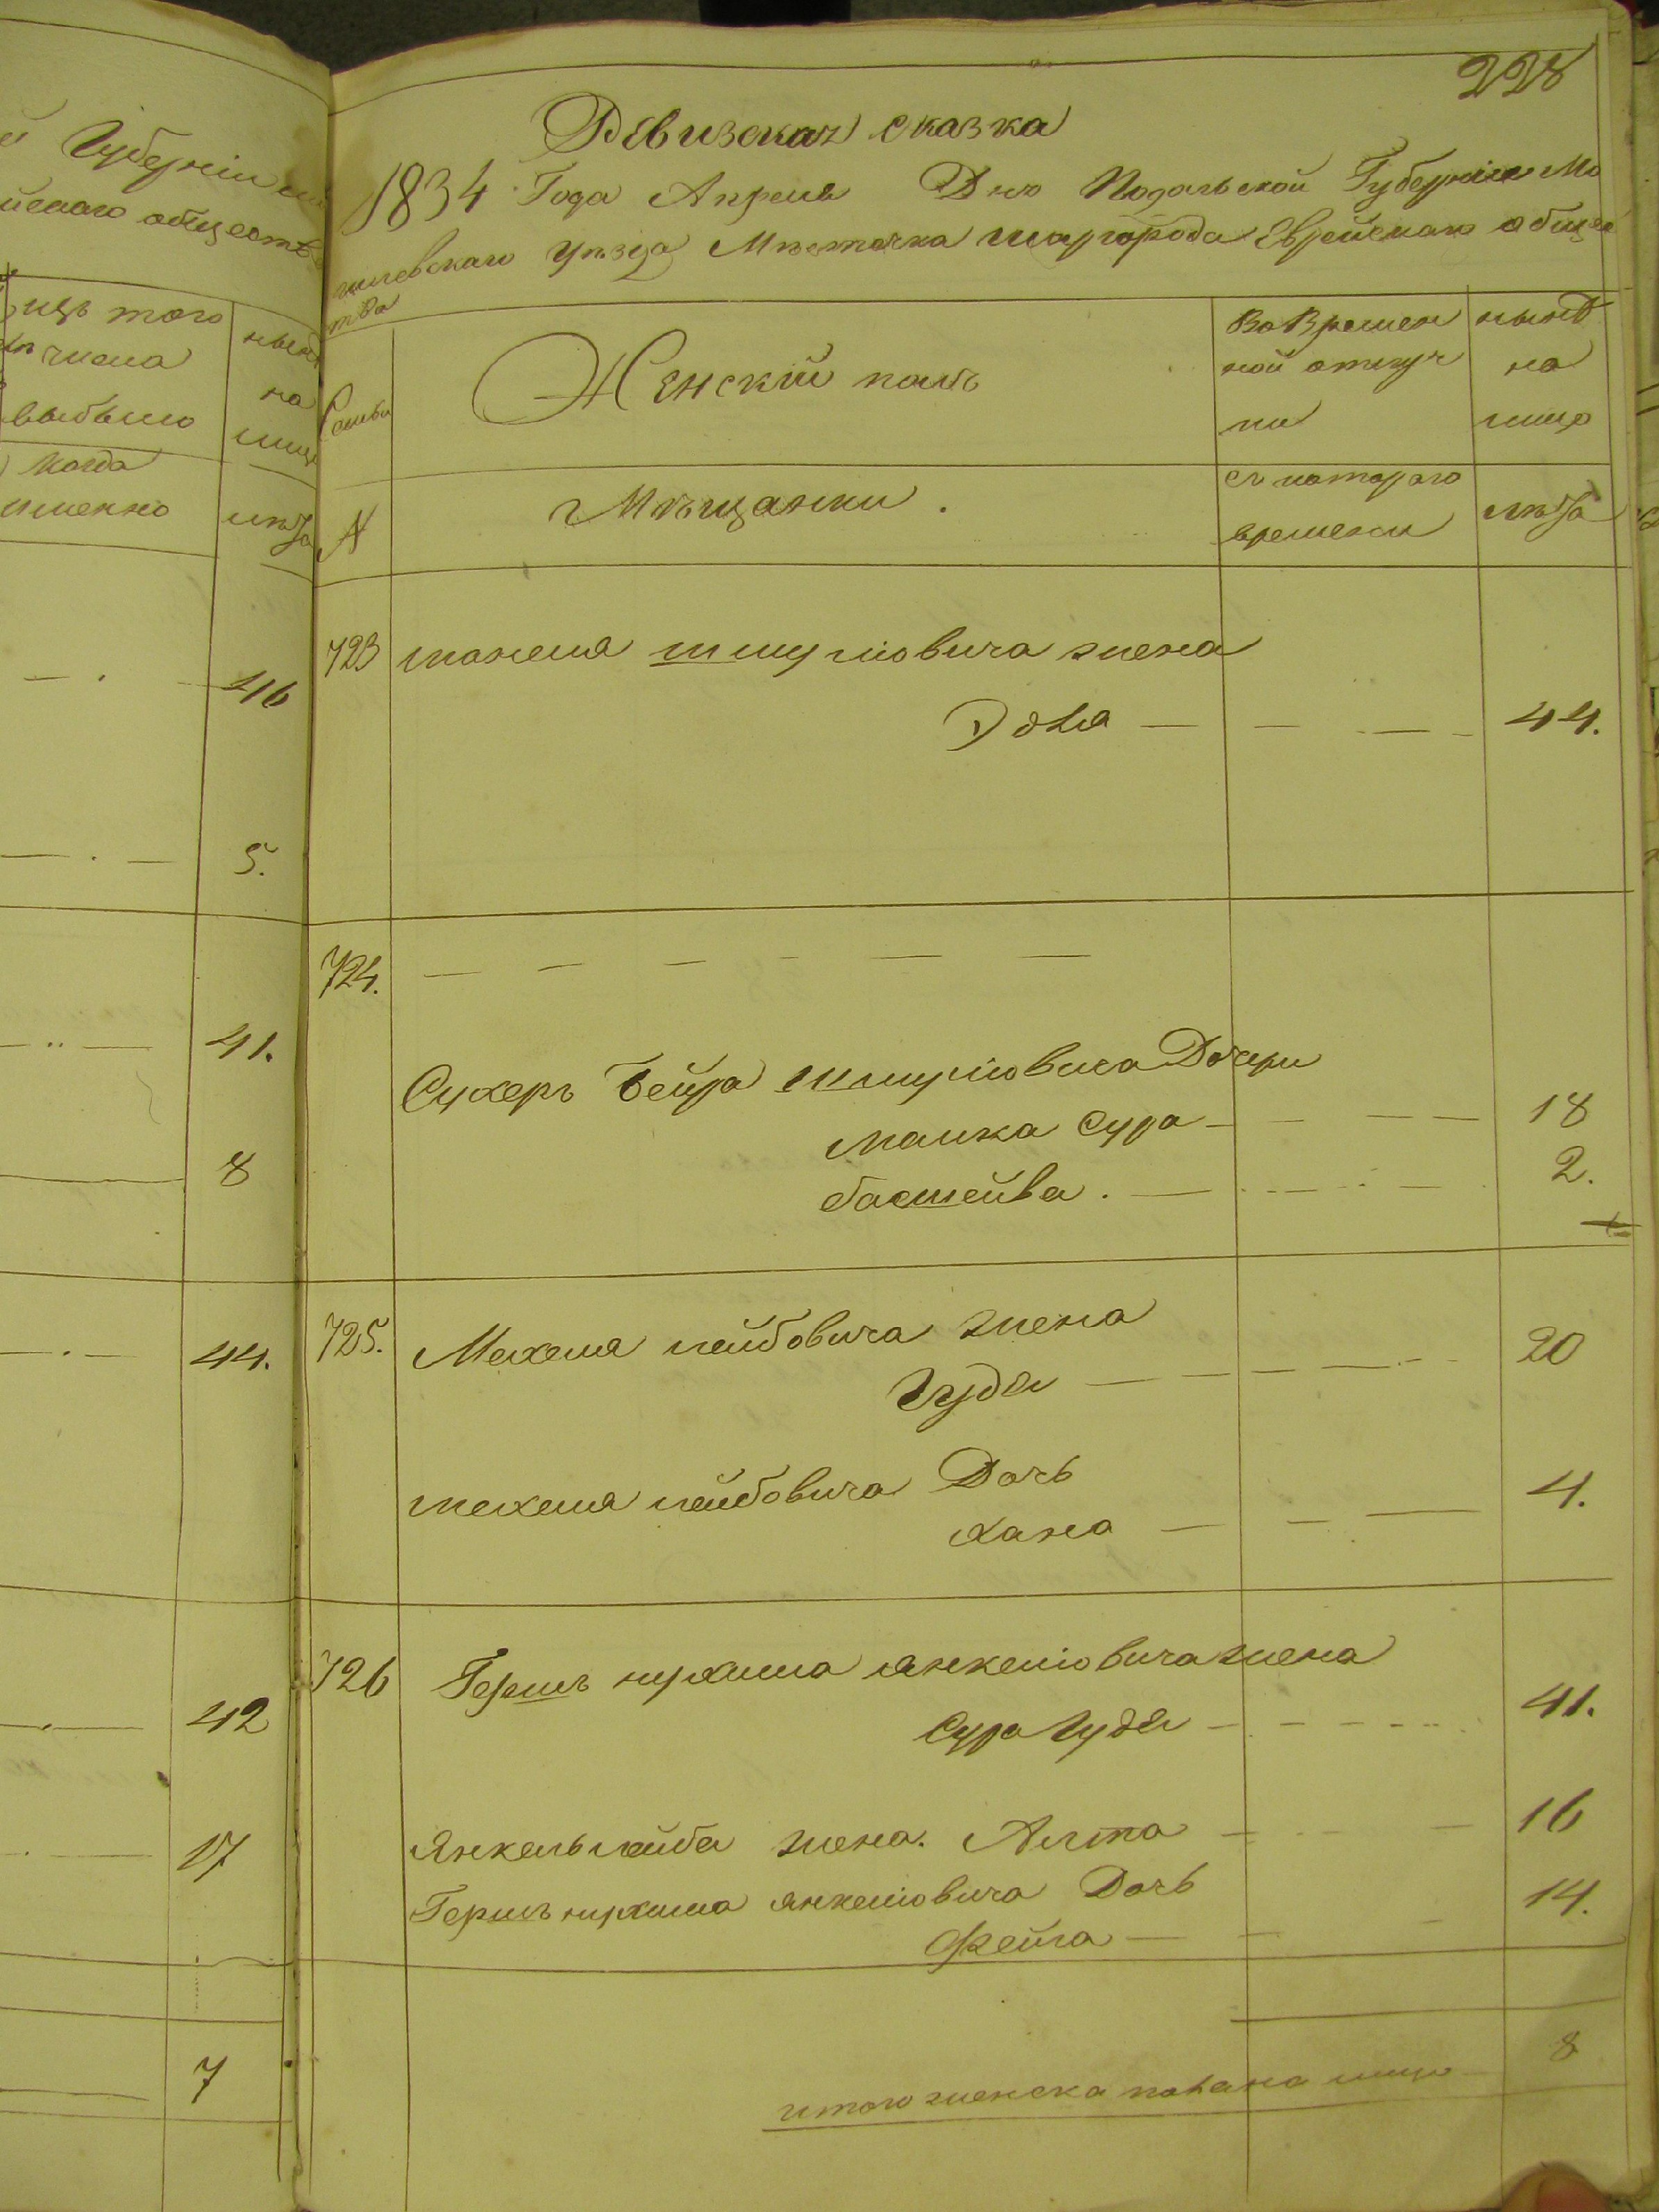 й Губерніи
йскаго обществ
изъ того
числа
выбыло
когда
именно
нынѣ
на
лицо
лѣта
46
5.
41.
8
44.
42
17
7
228
Ревизская сказка
1834 Года Апреля Дня Подольской Губерніи Мо
гилевскаго уѣзда Мѣстечка Шаргорода Еврейскаго общес
тва
Семьи
Женскій полъ
Во Времен
ной отлуч
ки
нынѣ
на
лицо
№
Мѣщанки.
съ котораго
времени
лѣта
723 Шмуліовича жена
44.
724.
Сухеръ Бейра Шмуліовича Дочери
Малка Сура 18
басшейва. 2.
725. Мехеля лейбовича жена
Гудя 20
мехеля лейбовича Дочь
хана 4.
726 Гершъ нухима янкеліовича жена
Сура Гудя 41.
Янкель лейба жена. Алта 16
Гершъ нухима янкеліовича Дочь
Фейга 14.
итого женска пола на лицо 8